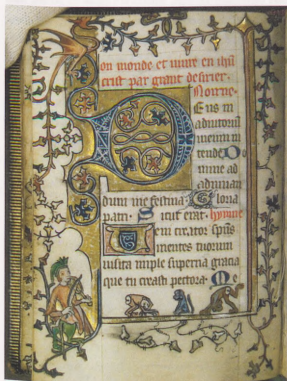 on monde et viure en ihu
crist par grant desirer.
Norne.
Eus in
adiutoriū
meum in
tende. Do
mine ad
adiuuan
dum me festina. Gloria
patri. Sicut erat. hymne
Ueni creator spūs
mentes tuorum
uisita imple superna gracia
que tu creasti pectora. Me